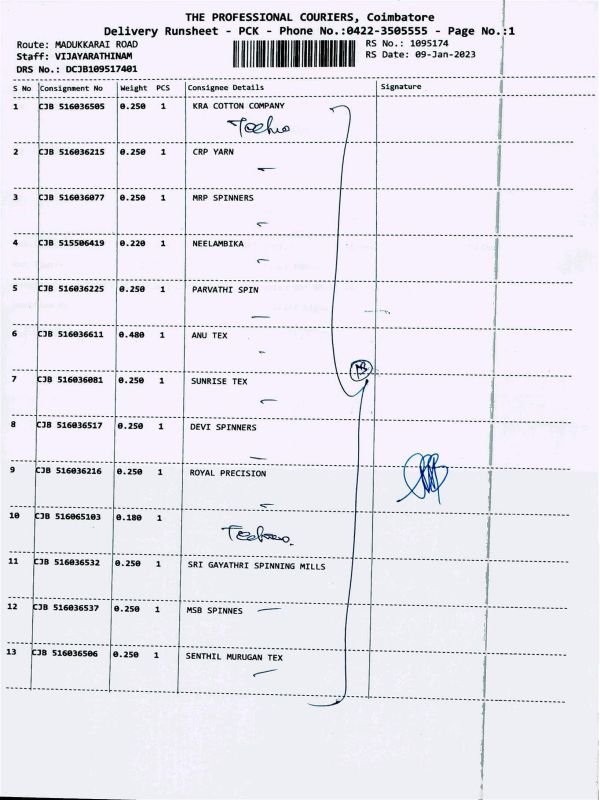 THE PROFESSIONAL COURIERS, Coimbatore
Delivery Runsheet - PCK - Phone No.:0422-3505555 - Page No.:1
Route: MADUKKARAI ROAD
RS No.: 1095174
Staff: VIJAYARATHINAM
RS Date: 09-Jan-2023
DRS No.: DCJB109517401
S No Consignment No Weight PCS Consignee Details Signature
1 CJB 516036505 0.250 1 KRA COTTON COMPANY
2 CJB 516036215 0.250 1 CRP YARN
3 CJB 516036077 0.250 1 MRP SPINNERS
4 CJB 515506419 0.220 1 NEELAMBIKA
5 CJB 516036225 0.250 1 PARVATHI SPIN
6 CJB 516036611 0.480 1 ANU TEX
7 CJB 516036081 0.250 1 SUNRISE TEX
8 CJB 516036517 0.250 1 DEVI SPINNERS
9 CJB 516036216 0.250 1 ROYAL PRECISION
10 CJB 516065103 0.180 1
11 CJB 516036532 0.250 1 SRI GAYATHRI SPINNING MILLS
12 CJB 516036537 0.250 1 MSB SPINNES
13 CJB 516036506 0.250 1 SENTHIL MURUGAN TEX